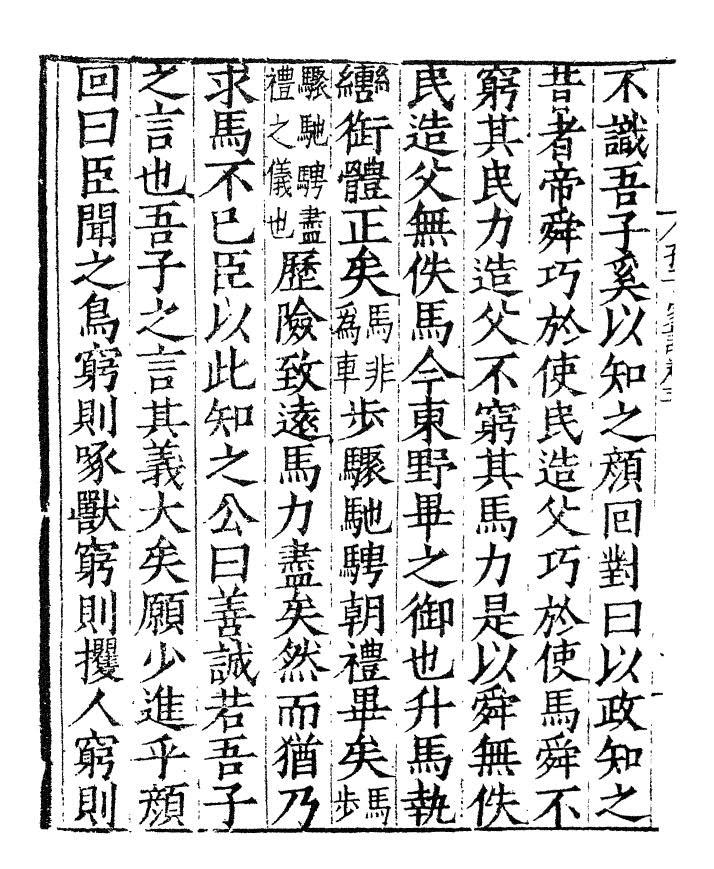 不識吾子奚以知之顔回對曰以政知之
昔者帝舜巧於使民造父巧於使馬舜不
窮其民力造父不窮其馬力是以舜無佚
民造父無佚馬今東野畢之御也升馬執
轡銜體正矣馬非為車步驟馳騁朝禮畢矣馬步
驟馳騁盡禮之儀也歷險致遠馬力盡矣然而猶乃
求馬不已臣以此知之公曰善誠若吾子
之言也吾子之言其義大矣願少進乎顔
回曰臣聞之鳥窮則啄獸窮則攫人窮則